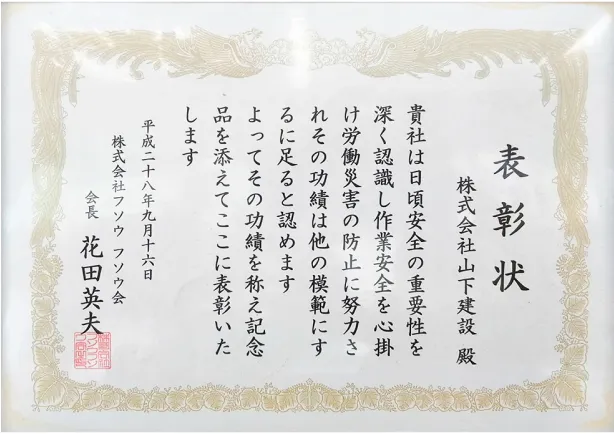 表彰状
株式会社山下建設 殿
貴社は日頃安全の重要性を
深く認識し作業安全を心掛
け労働災害の防止に努力さ
れその功績は他の模範にす
るに足ると認めます
よってその功績を称え記念
品を添えてここに表彰いた
します
平成二十八年九月十六日
株式会社フソウ フソウ会
会長 花田英夫